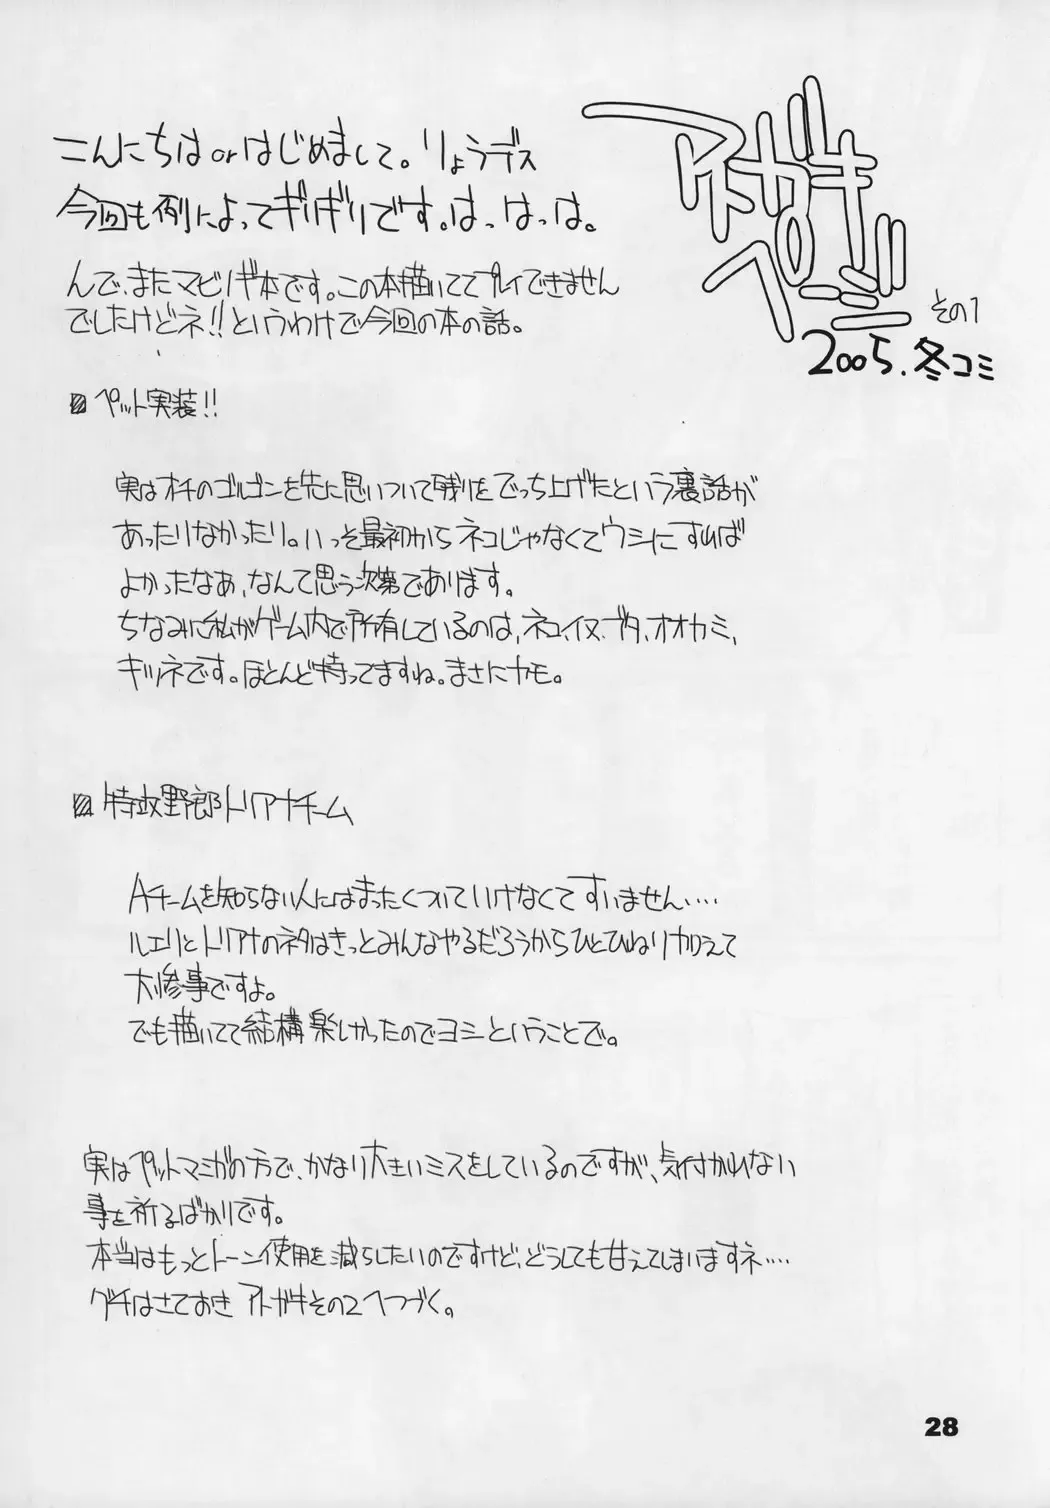 アトがき
ぺーじ
その1
2005.冬コミ
こんにちはorはじめまして。りょうデス
今回も例によってギリギリです。はっはっは。
んで、またマビノギ本です。この本描いててプレイできません
でしたけどネ!!というわけで今回の本の話。
ペット実装!!
実はオチのゴルゴンを先に思いついて残りをでっち上げたという裏話が
あったりなかったり。いっそ最初からネコじゃなくてウシにすれば
よかったなあ、なんて思う次第であります。
ちなみに私がゲーム内で所有しているのは、ネコ、イヌ、ブタ、オオカミ、
キツネです。ほとんど持ってますね。まさにカモ。
特攻野郎トリアナチーム
Aチームを知らない人にはまったくついていけなくてすいません‥‥
ルエリとトリアナのネタはきっとみんなやるだろうからひとひねり加えて
大惨事ですよ。
でも描いてて結構楽しかったのでヨシということで。
実はペットマンガの方で、かなり大きいミスをしているのですが、気付かれない
事を祈るばかりです。
本当はもっとトーン使用を減らしたいのですけど、どうしても甘えてしまいますネ‥‥
グチはさておき アトガキその2へつづく。
28